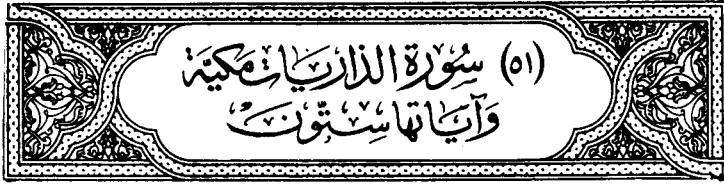 (٥١) سُورَة الذاريَات مَكيَّة
وَآيَاتها سِتّونَ